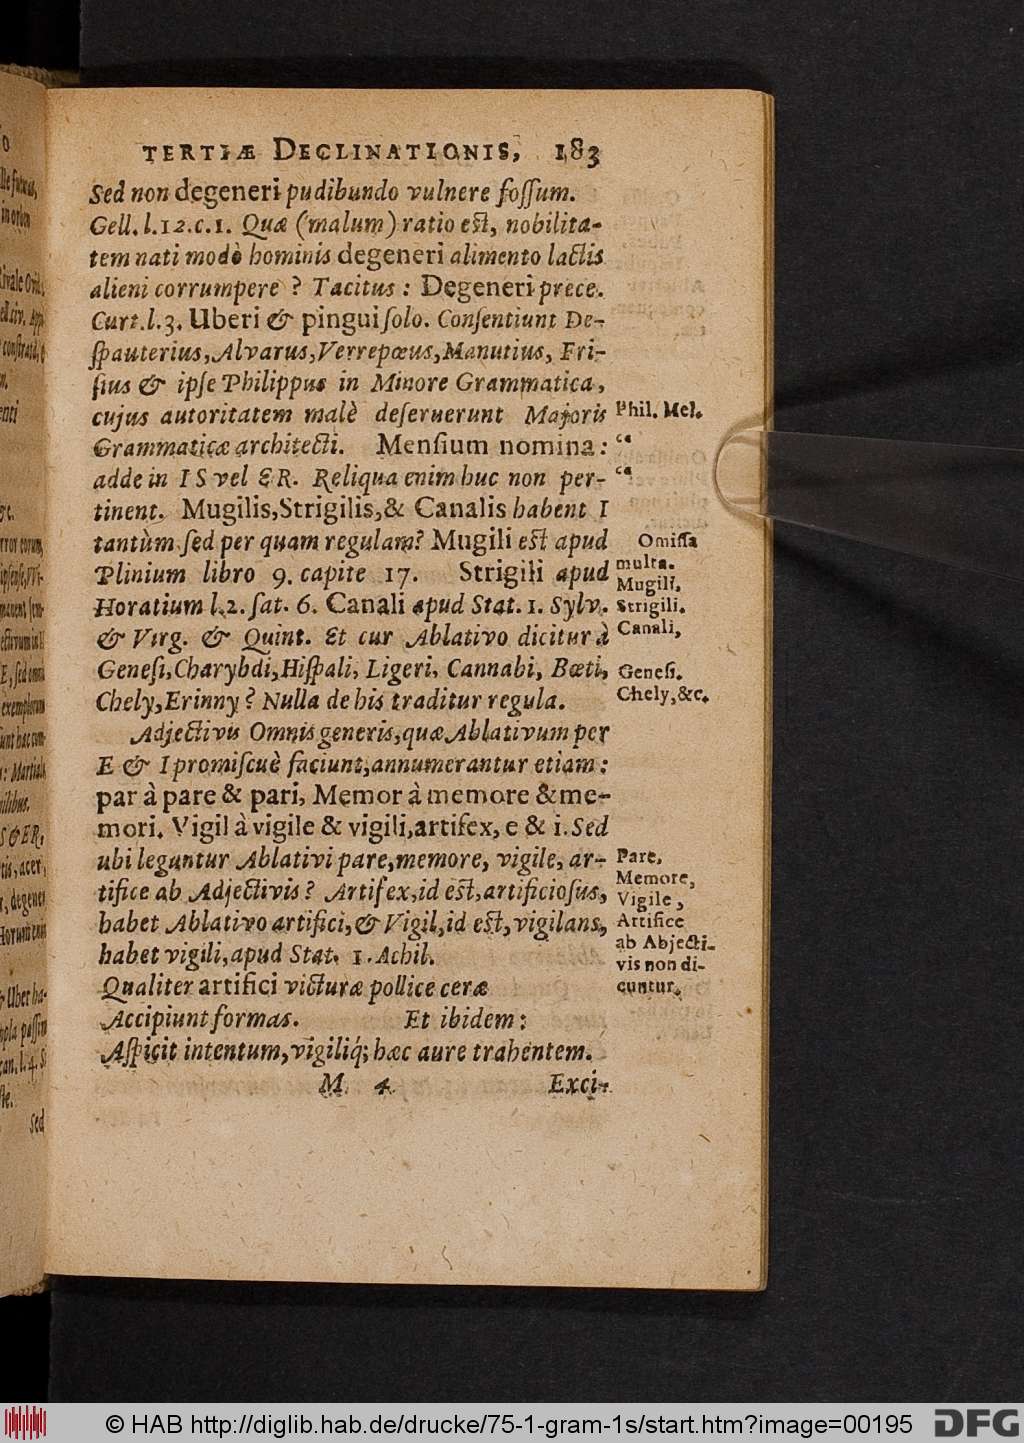 TERTIÆ DECLINATIONIS, 183
Sed non degeneri pudibundo vulnere fossum.
Gell. l.12.c.1. Quæ (malum) ratio est, nobilita-
tem nati modò hominis degeneri alimento lactis
alieni corrumpere ? Tacitus : Degeneri prece.
Curt.l.3. Uberi & pingui solo. Consentiunt De-
spauterius, Alvarus, Verrepœus, Manutius, Fri-
sius & ipse Philippus in Minore Grammatica,
cujus autoritatem malè deseruerunt Majoris
Phil. Mel.
Grammaticæ architecti. Mensium nomina :
adde in IS vel ER. Reliqua enim huc non per-
tinent. Mugilis, Strigilis, & Canalis habent I
tantùm sed per quam regulam? Mugili est apud
Omissa
Plinium libro 9. capite 17. Strigili apud
multa.
Mugili.
Horatium l.2. sat. 6. Canali apud Stat. 1. Sylv.
Strigili.
& Virg. & Quint. Et cur Ablativo dicitur à
Canali,
Genesi, Charybdi, Hispali, Ligeri, Cannabi, Bœti,
Genesi.
Chely, Erinny ? Nulla de his traditur regula.
Chely, &c.
Adjectivis Omnis generis, quæ Ablativum per
E & I promiscuè faciunt, annumerantur etiam :
par à pare & pari, Memor à memore & me-
mori. Vigil à vigile & vigili, artifex, e & i. Sed
ubi leguntur Ablativi pare, memore, vigile, ar-
Pare,
Memore,
tifice ab Adjectivis ? Artifex, id est, artificiosus,
Vigile,
habet Ablativo artifici, & Vigil, id est, vigilans,
Artifice
ab Abjecti-
habet vigili, apud Stat. 1. Achil.
vis non di-
Qualiter artifici victuræ pollice ceræ
cuntur.
Accipiunt formas. Et ibidem :
Aspicit intentum, vigiliq́; hæc aure trahentem.
M 4 Exci-
© HAB http://diglib.hab.de/drucke/75-1-gram-1s/start.htm?image=00195
DFG